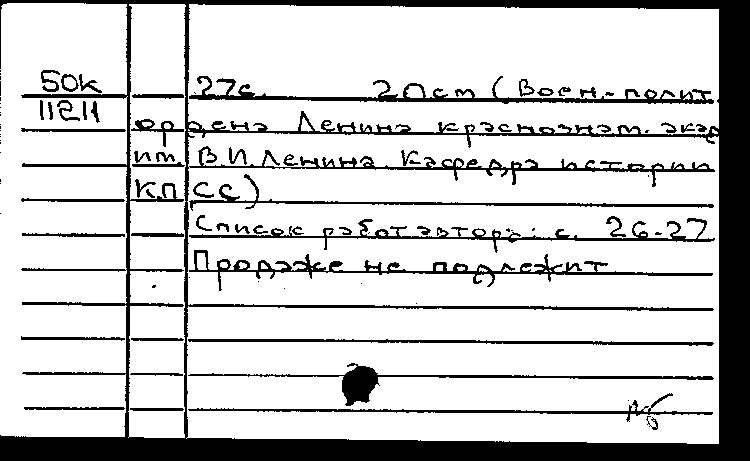 50к
11211
27с. 20см (Воен.-полит.
ордена Ленина краснознам. акад
им. В.И. Ленина. Кафедра истории
КПСС).
Список работ автора: с. 26-27
Продаже не подлежит